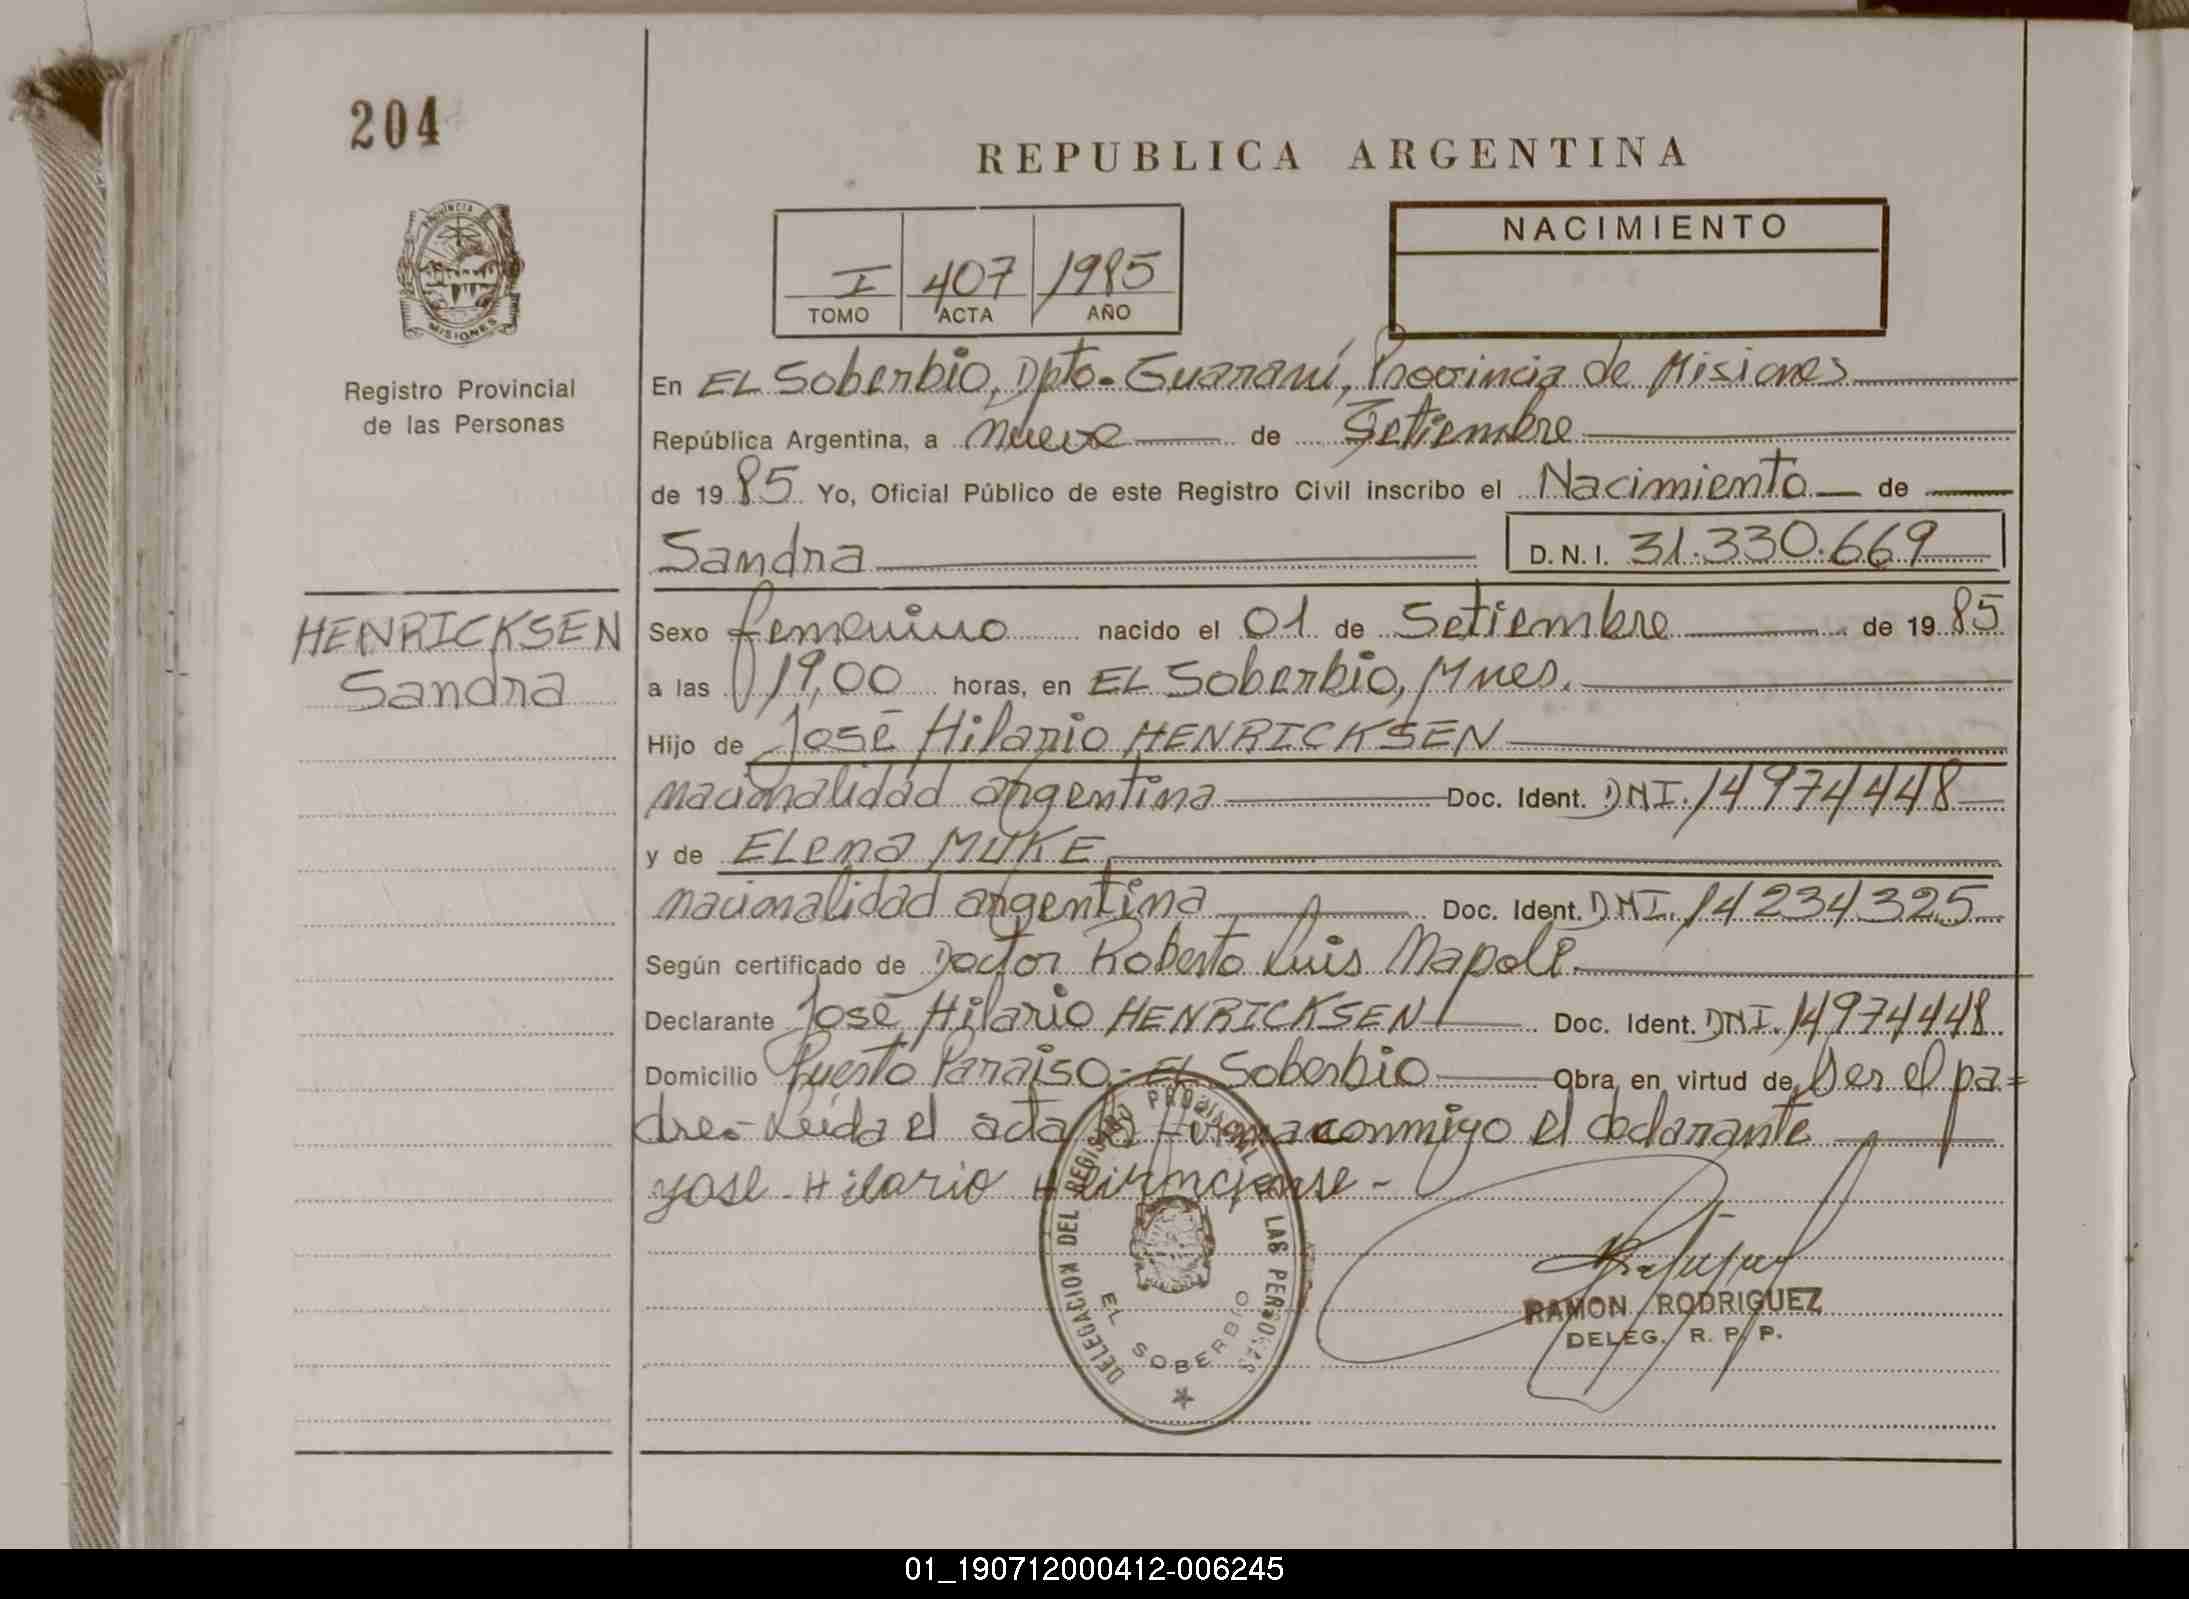 204
REPUBLICA ARGENTINA
PROVINCIA DE MISIONES
Registro Provincial
de las Personas
I 407 1985
TOMO ACTA AÑO
NACIMIENTO
En EL Soberbio, Dpto. Guaraní, Provincia de Misiones
República Argentina, a nueve de Setiembre
de 1985 Yo, Oficial Público de este Registro Civil inscribo el Nacimiento de
Sandra D.N.I. 31.330.669
HENRICKSEN
Sandra
Sexo femenino nacido el 01 de Setiembre de 1985
a las 19,00 horas, en EL Soberbio, Mnes.
Hijo de José Hilario HENRICKSEN
nacionalidad argentina Doc. Ident. DNI. 14974448
y de ELena MUKE
nacionalidad argentina Doc. Ident. DNI. 14234325
Según certificado de Doctor Roberto Luis Napoli
Declarante José Hilario HENRICKSEN Doc. Ident. DNI. 14974448
Domicilio Puerto Paraiso - EL Soberbio Obra en virtud de Ser el pa=
dre.- Leída el acta la firma conmigo el declarante
yose Hilario
DELEGACION DEL REGISTRO PROVINCIAL DE LAS PERSONAS
EL SOBERBIO
RAMON RODRIGUEZ
DELEG. R. P. P.
01_190712000412-006245